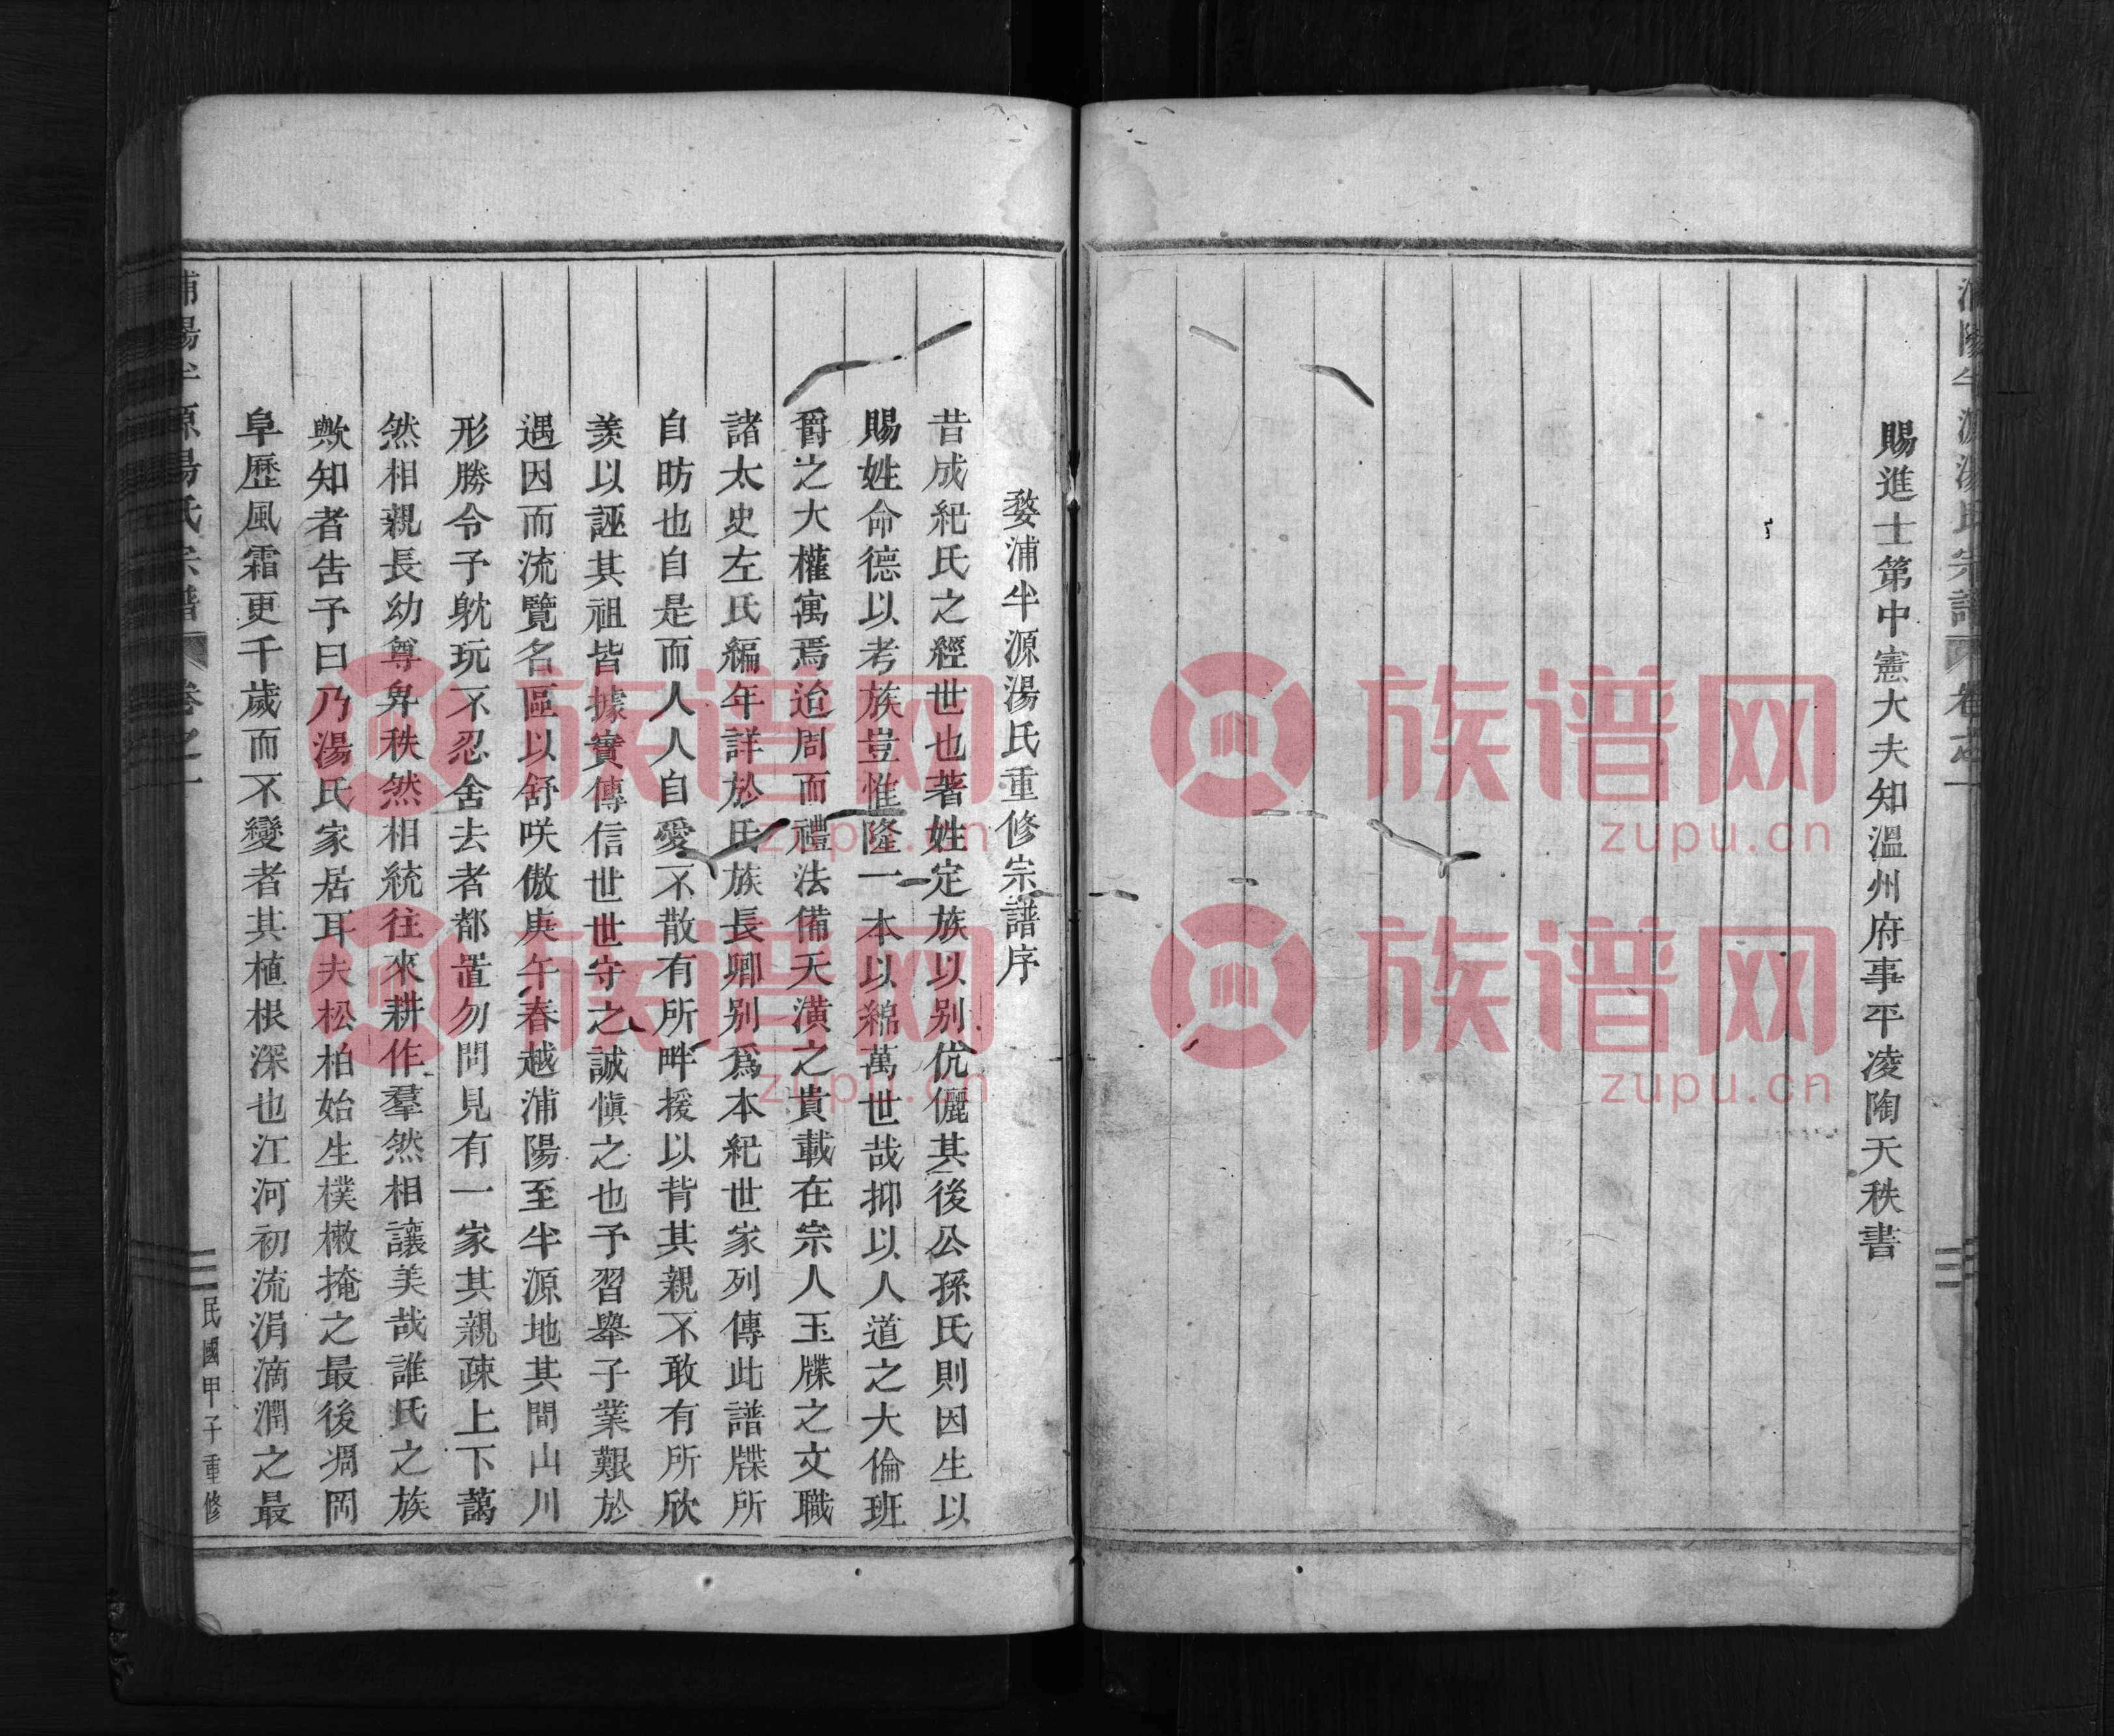 浦陽半源湯氏宗譜 卷之一
賜進士第中憲大夫知溫州府事平凌陶天秩書
婺浦半源湯氏重修宗譜序
昔成紀氏之經世也著姓定族以别伉儷其後公孫氏則因生以
賜姓命德以考族豈惟隆一本以綿萬世哉抑以人道之大倫班
爵之大權寓焉迨周而禮法備天潢之貴載在宗人玉牒之文職
諸太史左氏編年詳於氏族長卿别爲本紀世家列傳此譜牒所
自昉也自是而人人自愛不散有所畔援以背其親不敢有所欣
羨以誣其祖皆據實傳信世世守之誠愼之也予習舉子業艱於
遇因而流覽名區以舒咲傲庚午春越浦陽至半源地其間山川
形勝令予躭玩不忍舍去者都置勿問見有一家其親疎上下藹
然相親長幼尊卑秩然相統往來耕作羣然相讓美哉誰氏之族
歟知者告予曰乃湯氏家居耳夫松柏始生樸樕掩之最後凋岡
阜歷風霜更千歲而不變者其植根深也江河初流涓滴潤之最
浦陽半源湯氏宗譜 卷之一 三 民國甲子重修
族谱网
zupu.cn
族谱网
zupu.cn
族谱网
zupu.cn
族谱网
zupu.cn